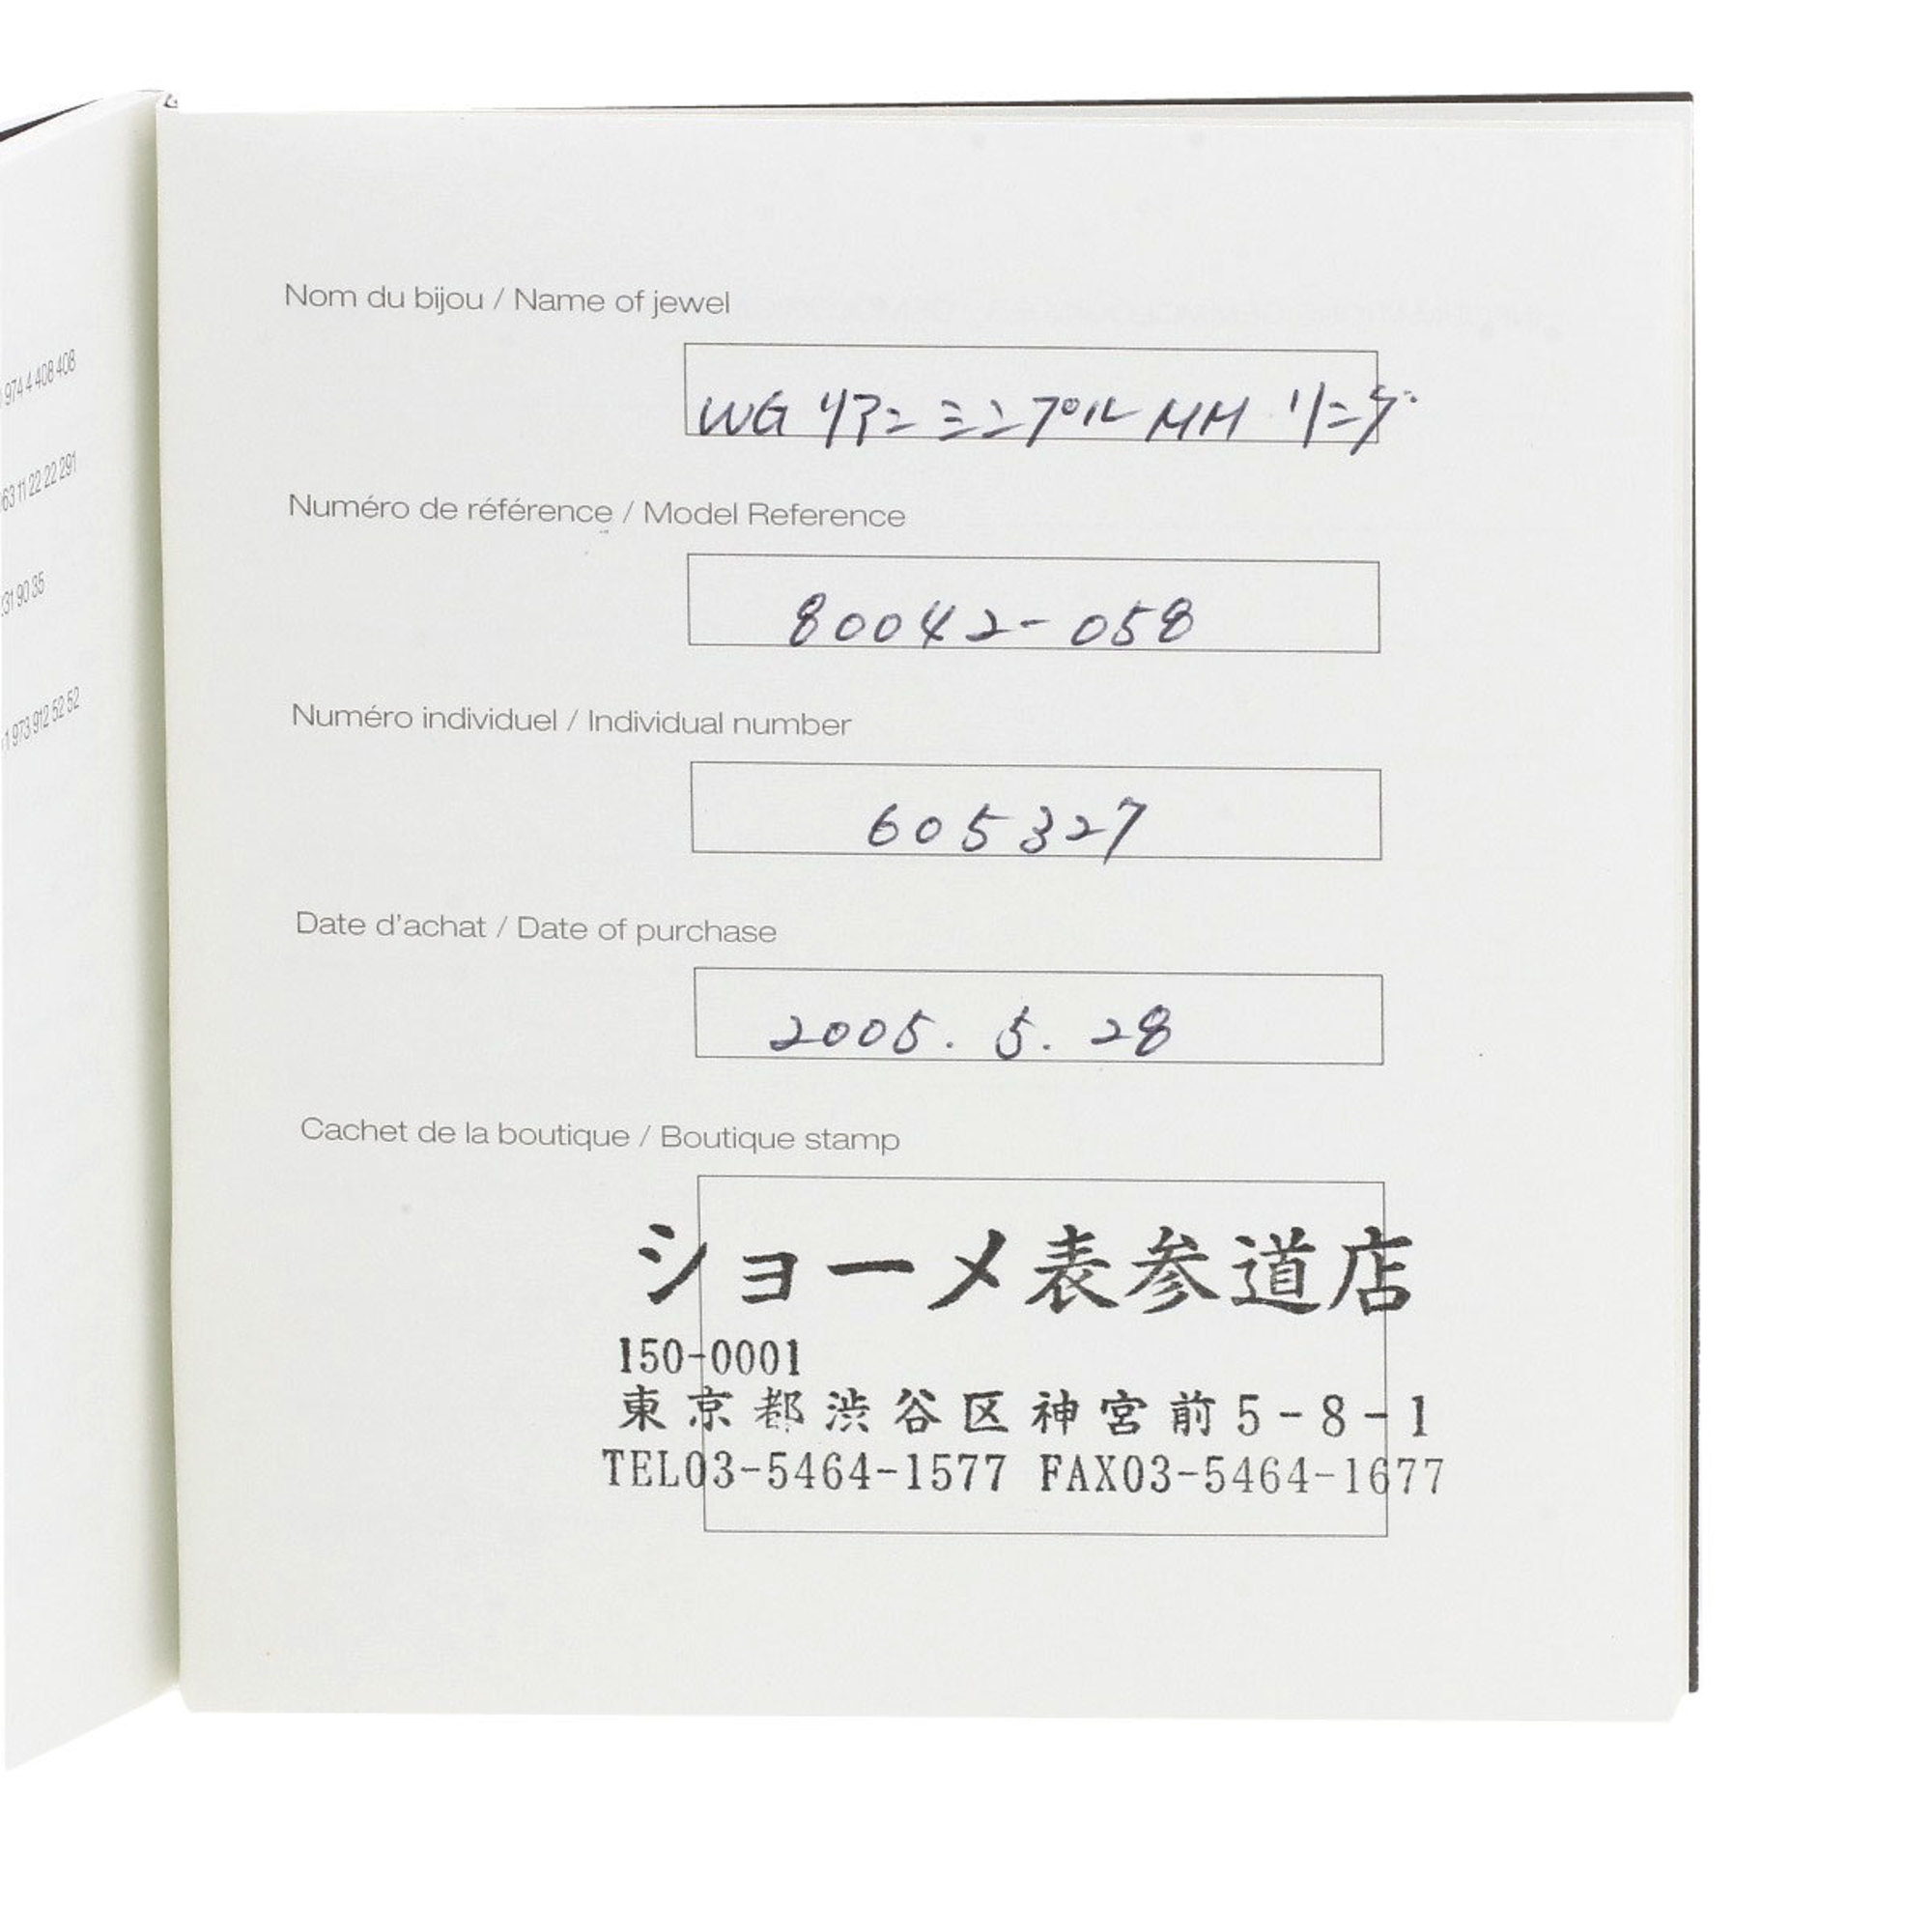 974 4 408 408
63 11 22 22 291
31 90 35
1 973 912 52 52
Nom du bijou / Name of jewel
WG リアン ミンプル MM リング
Numéro de référence / Model Reference
80042-058
Numéro individuel / Individual number
605327
Date d'achat / Date of purchase
2005. 5. 28
Cachet de la boutique / Boutique stamp
ショーメ表参道店
150-0001
東京都渋谷区神宮前5-8-1
TEL03-5464-1577 FAX03-5464-1677